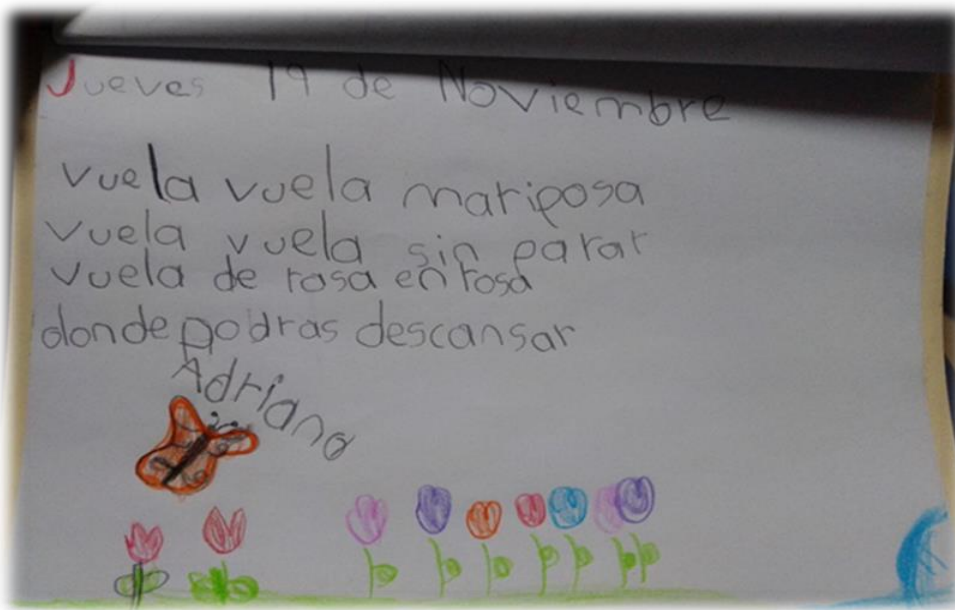 Jueves 19 de Noviembre
vuela vuela mariposa
vuela vuela sin parar
vuela de rosa en rosa
donde podras descansar
Adriano